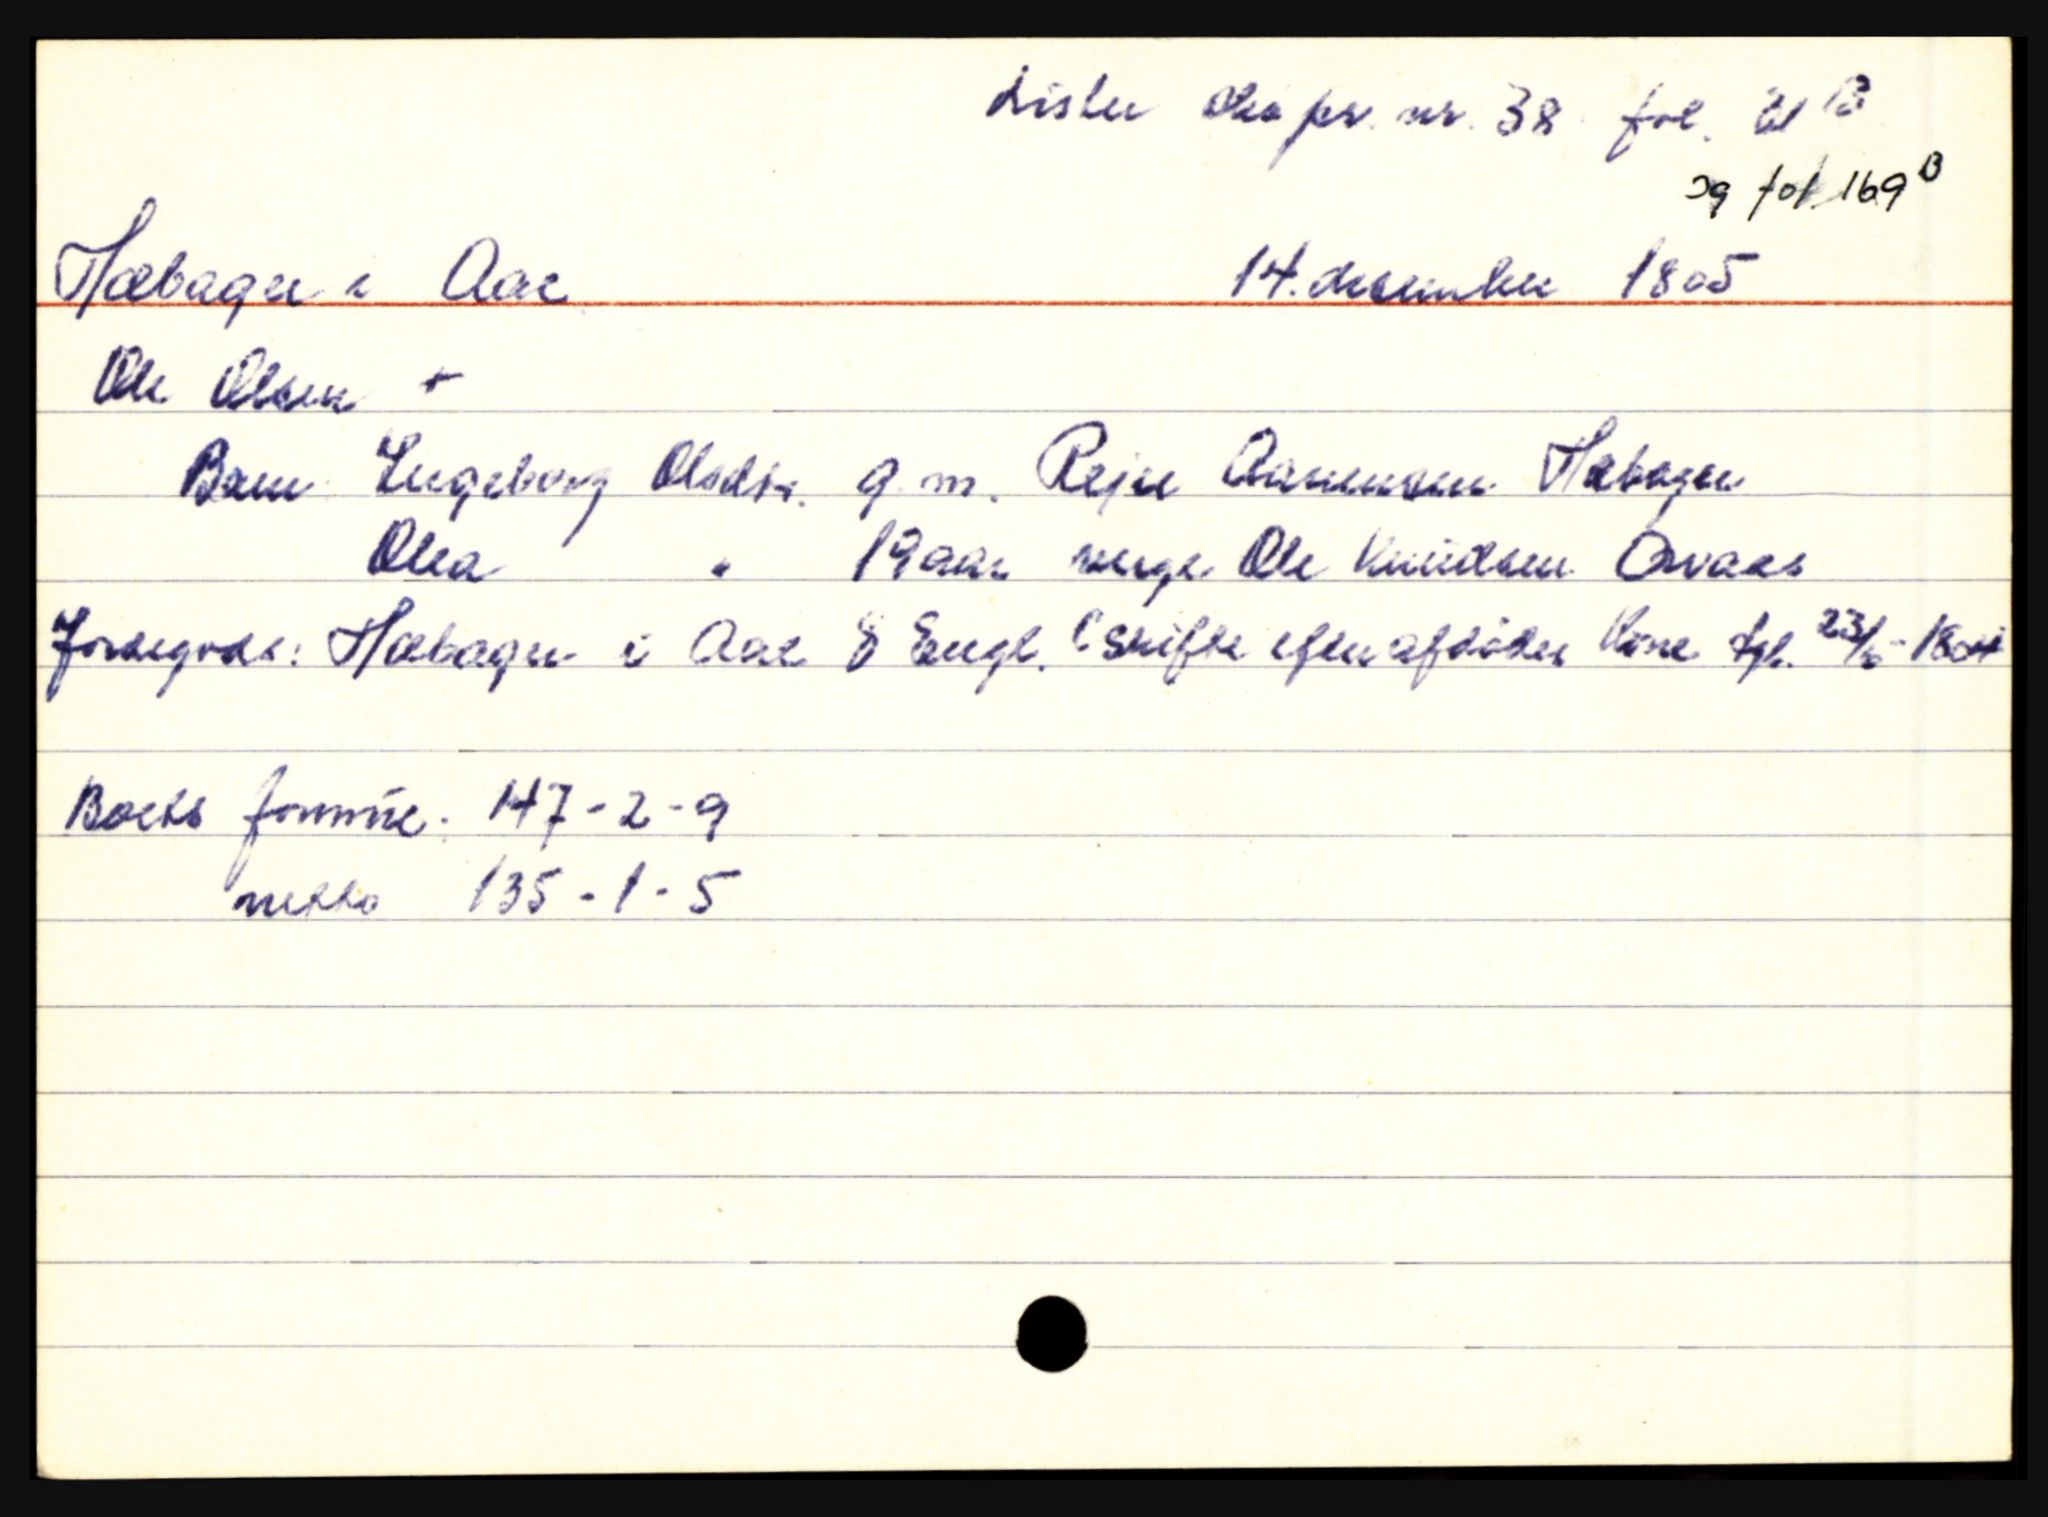 Lister skpr. nr. 38 fol. 21 B
og fol 169 B
Hæbagen i Aae 14. desember 1805
Ole Olsen +
Børn: Ingeborg Olsdtr. g. m. Rejer Aanensen Hæbagen
Olea " 19 aar verge Ole Knüdsen Øvaas
Jordegods: Hæbagen i Aae 8 Engl. (Skifte efter afdödes Kone tgl. 23/6-1804
Boets formüe: 147-2-9
netto 135-1-5